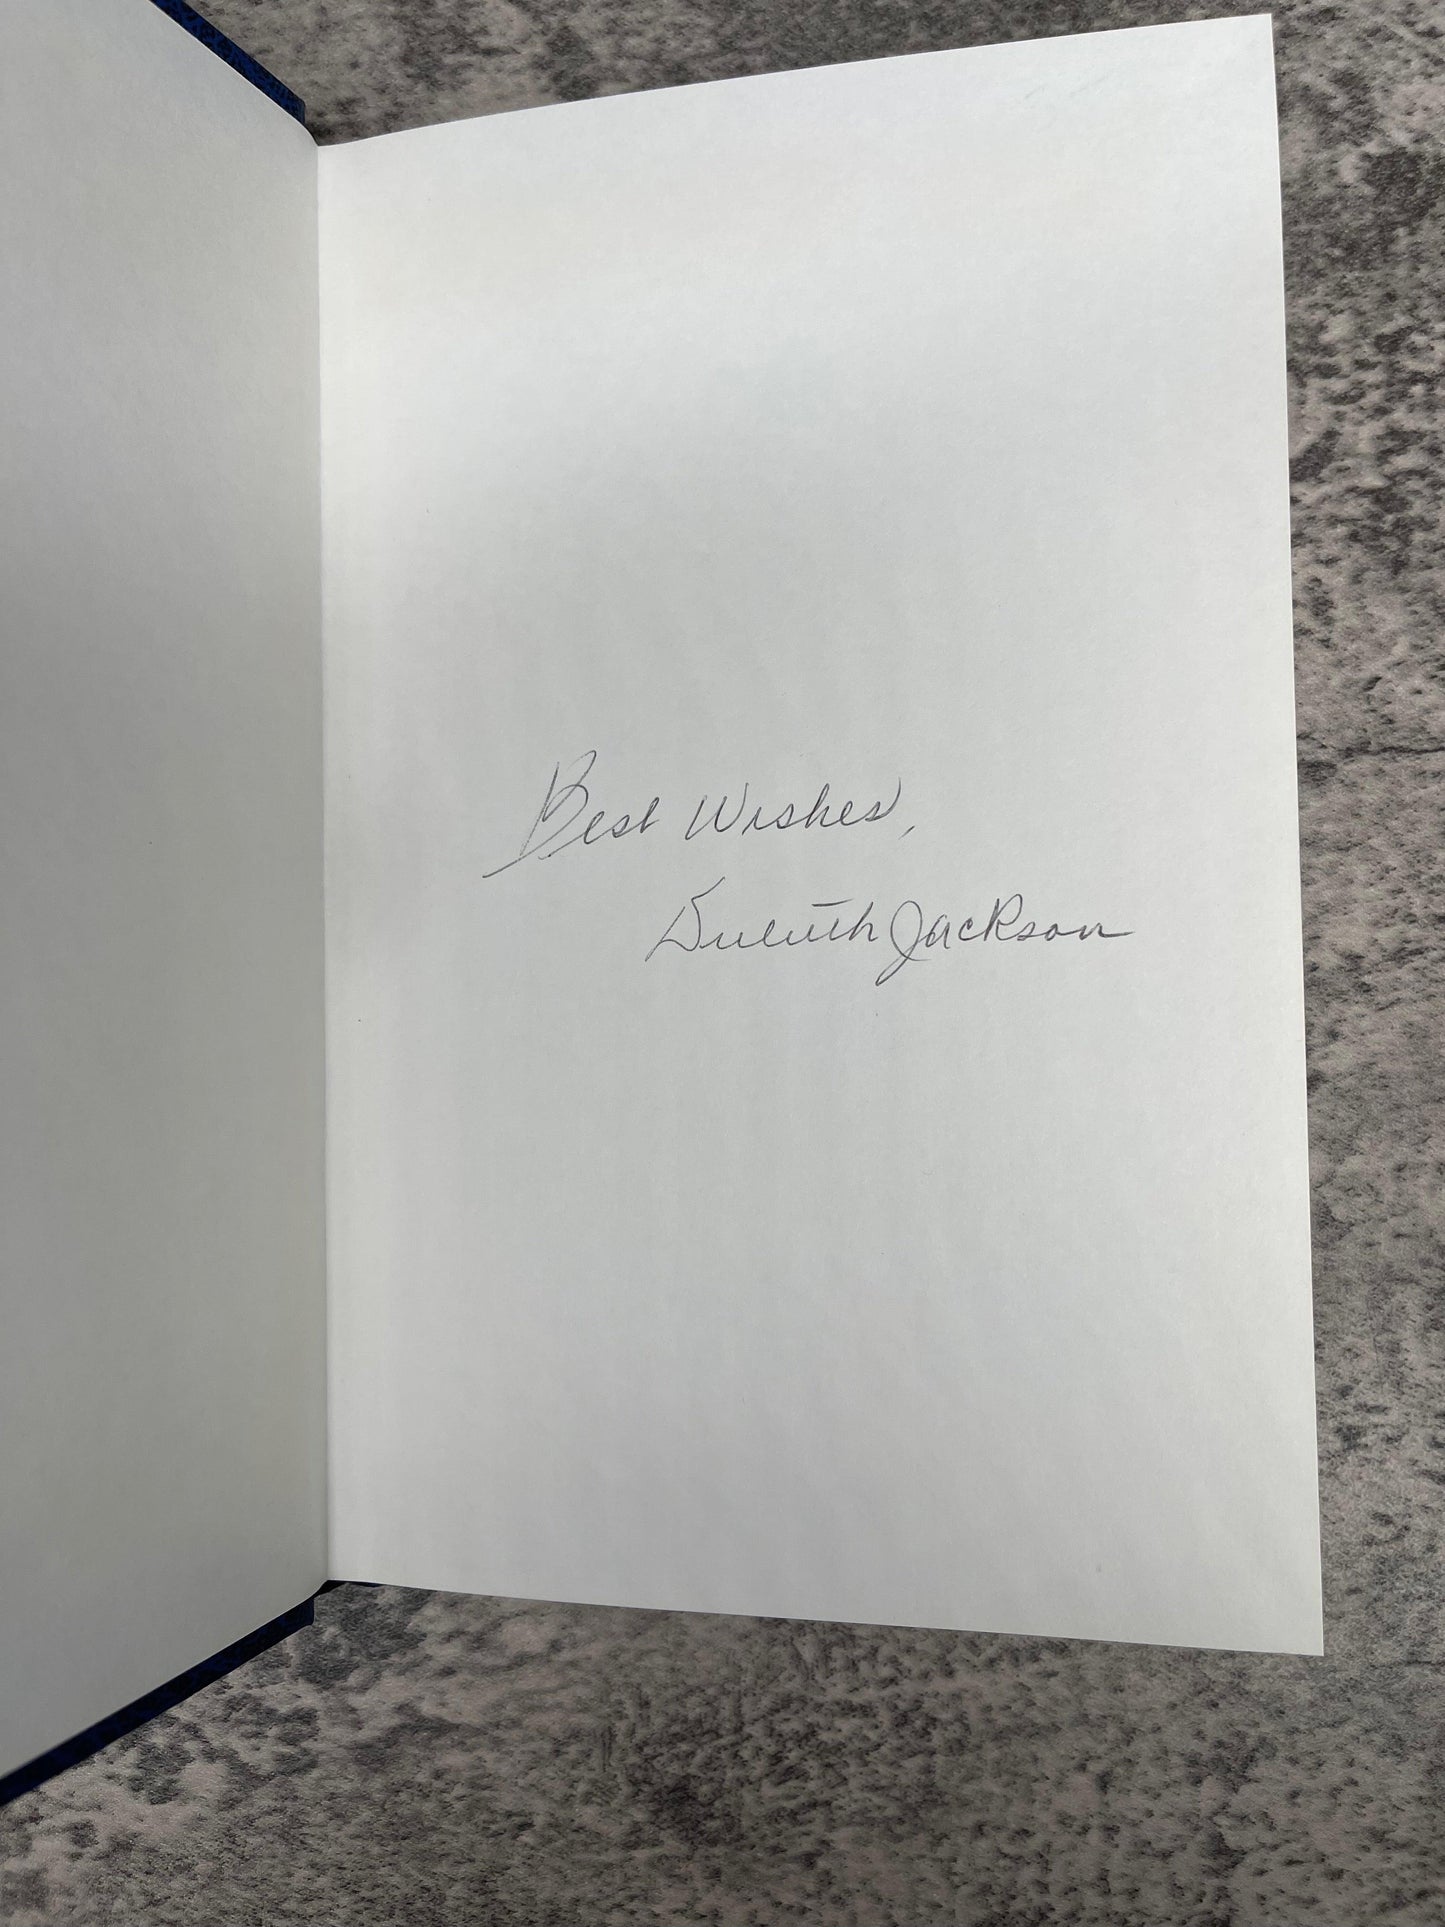 Best Wishes,
Duluth Jackson